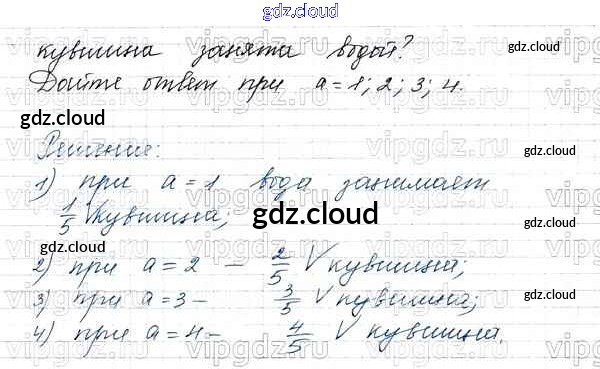 gdz.cloud
кувшина занята водой?
gdz.cloud
Дайте ответ при a = 1; 2; 3; 4.
gdz.cloud
Решение:
gdz.cloud
1) при a = 1 вода занимает
1/5 V кувшина;
gdz.cloud
gdz.cloud
2) при a = 2 – 2/5 V кувшина;
gdz.cloud
3) при a = 3 – 3/5 V кувшина;
gdz.cloud
4) при a = 4 – 4/5 V кувшина.
gdz.cloud